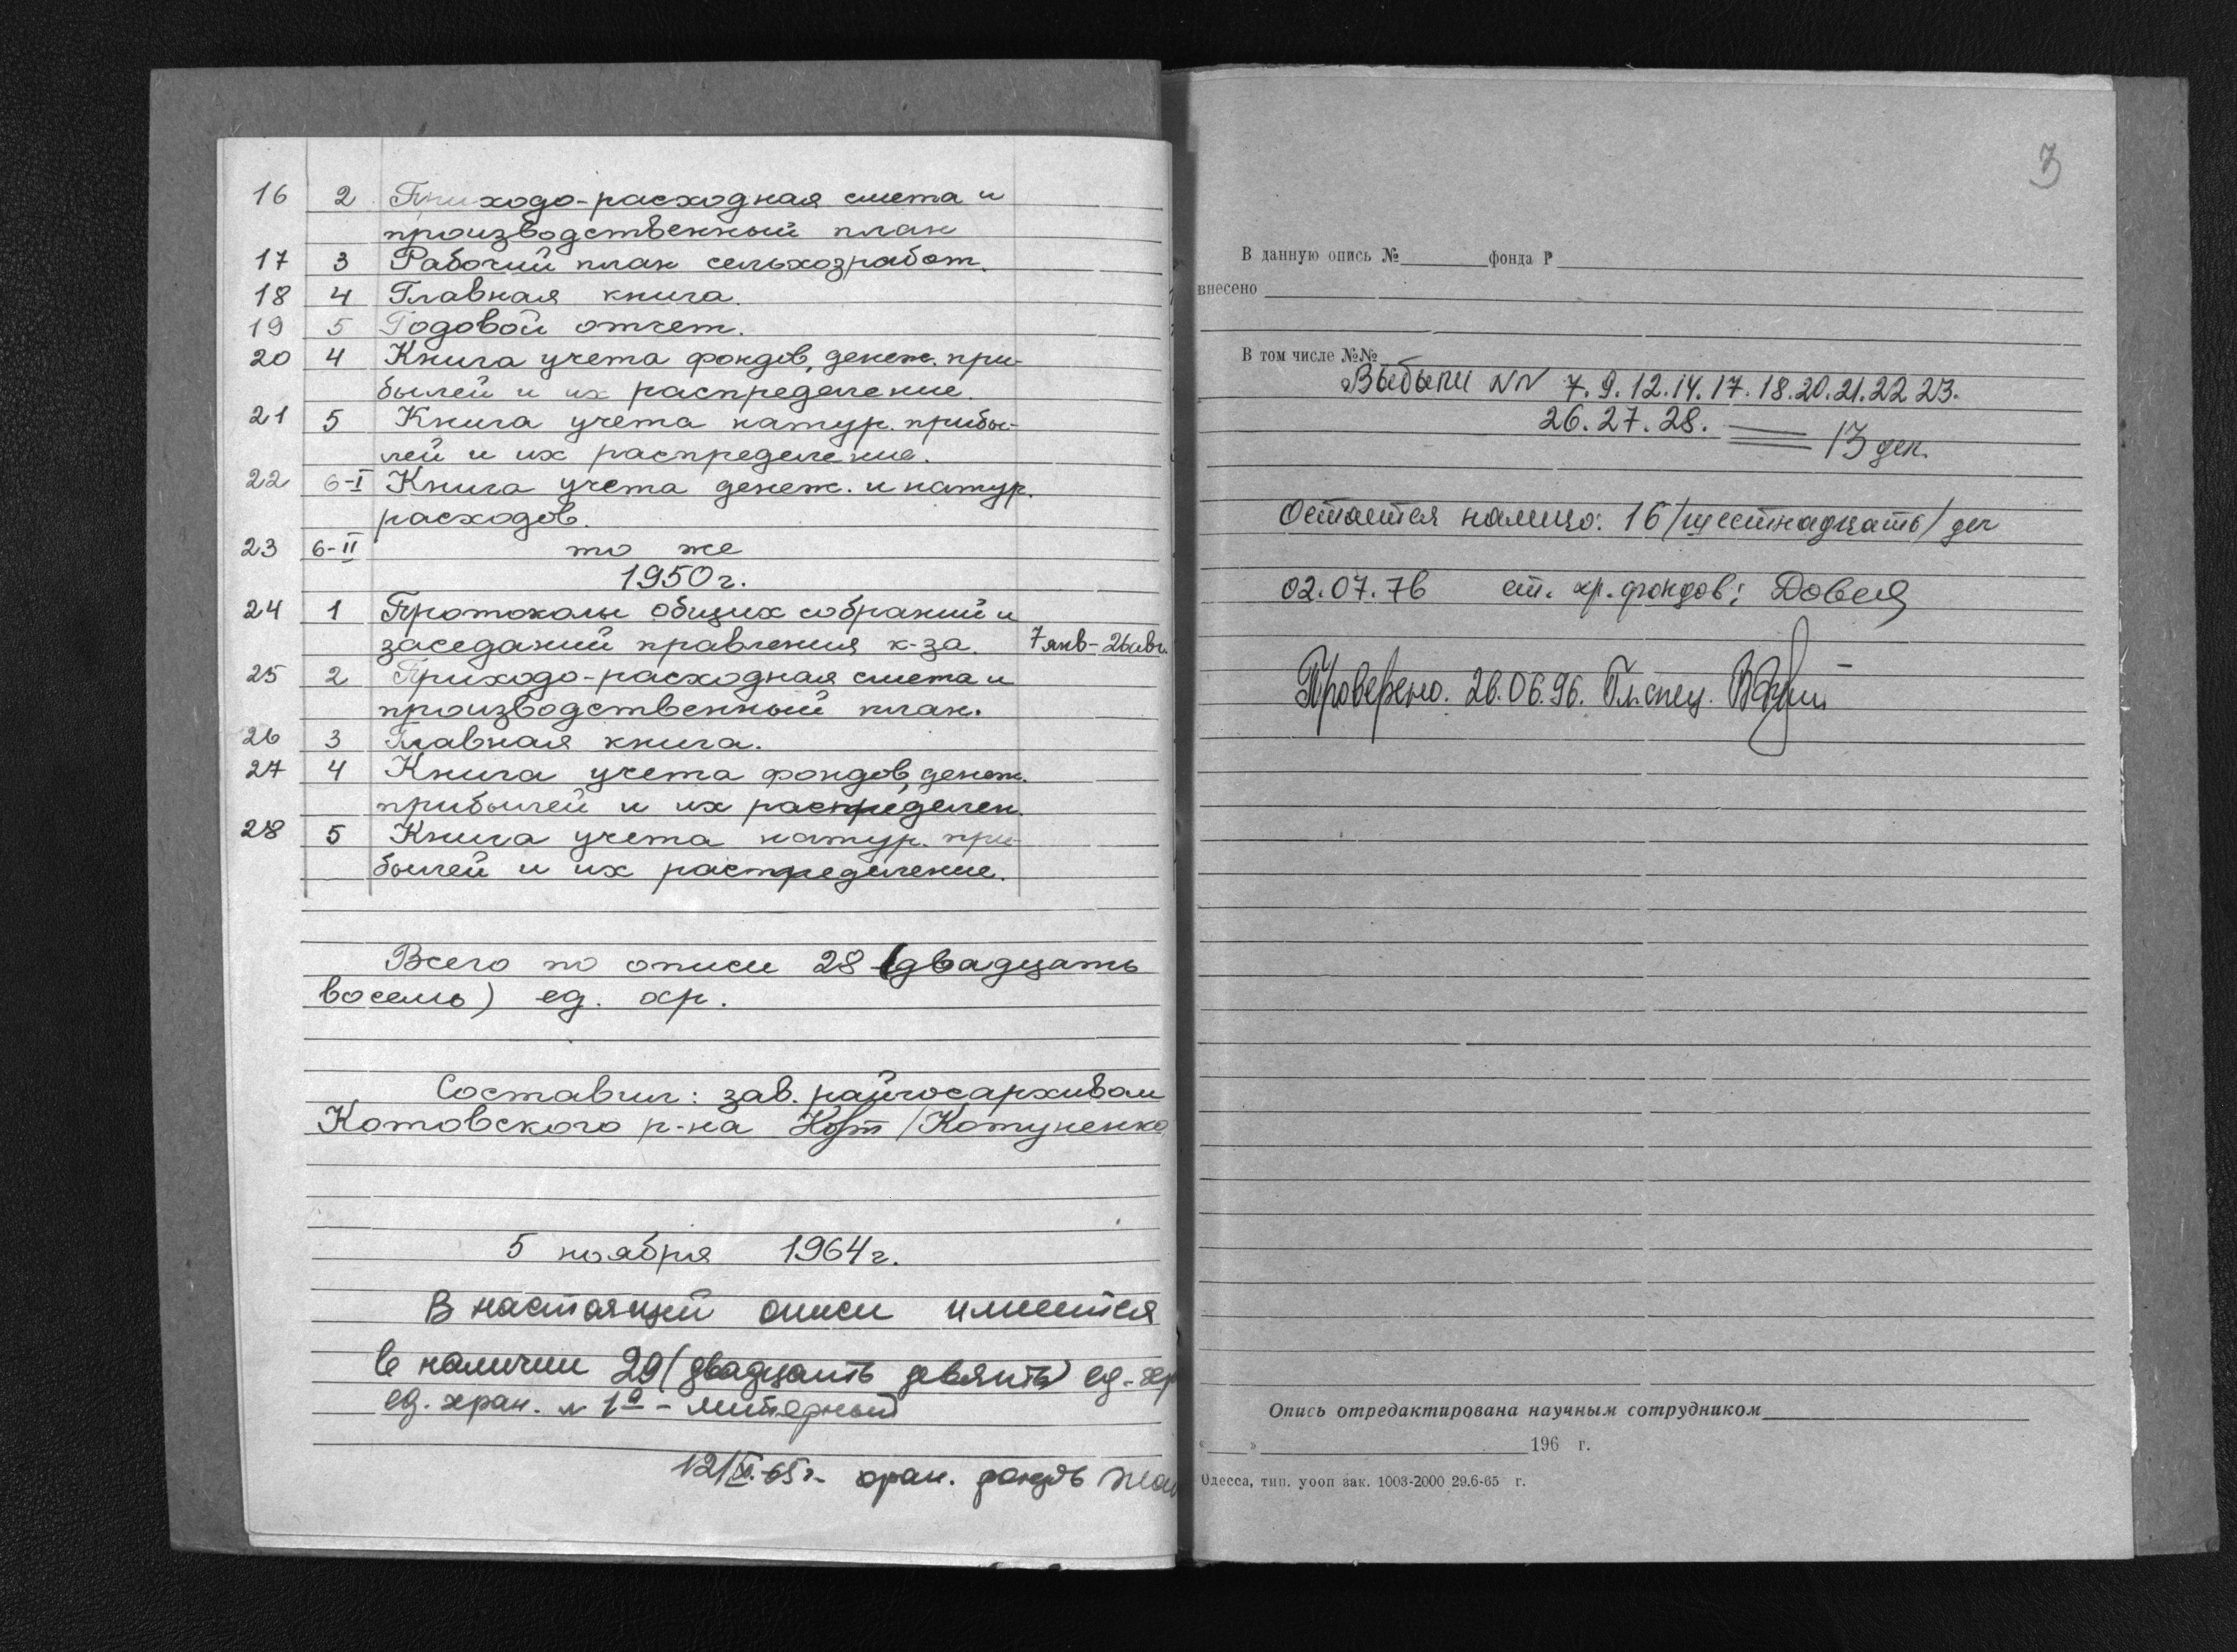 16 2 Приходо-расходная смета и
производственный план
17 3 Рабочий план сельхозработ.
18 4 Главная книга.
19 5 Годовой отчет.
20 4 Книга учета фондов, денеж. при-
былей и их распределение.
21 5 Книга учета натур. прибы-
лей и их распределение.
22 6-I Книга учета денеж. и натур.
расходов.
23 6-II то же
1950 г.
24 1 Протоколы общих собраний и
заседаний правления к-за. 7 янв - 26 авг.
25 2 Приходо-расходная смета и
производственный план.
26 3 Главная книга.
27 4 Книга учета фондов, денеж.
прибылей и их распределен.
28 5 Книга учета натур. при-
былей и их распределение.
Всего по описи 28 (двадцать
восемь) ед. хр.
Составил: зав. райгосархивом
Котовского р-на /Котуненко
5 ноября 1964 г.
В настоящей описи имеется
в наличии 29 (двадцать девять) ед. хр
ед. хран. и 1а - литерный
12/XI-65 г. хран. фондов
3
В данную опись № фонда Р
внесено
В том числе №№
Выбыли NN 7. 9. 12. 14. 17. 18. 20. 21. 22 23.
26. 27. 28. 13 дел.
Остается налицо: 16 /шестнадцать/ дел
02.07.76 ст. хр. фондов:
Проверено. 26.06.96. Гл. спец.
Опись отредактирована научным сотрудником
« » 196 г.
Одесса, тип. уооп зак. 1003-2000 29.6-65 г.